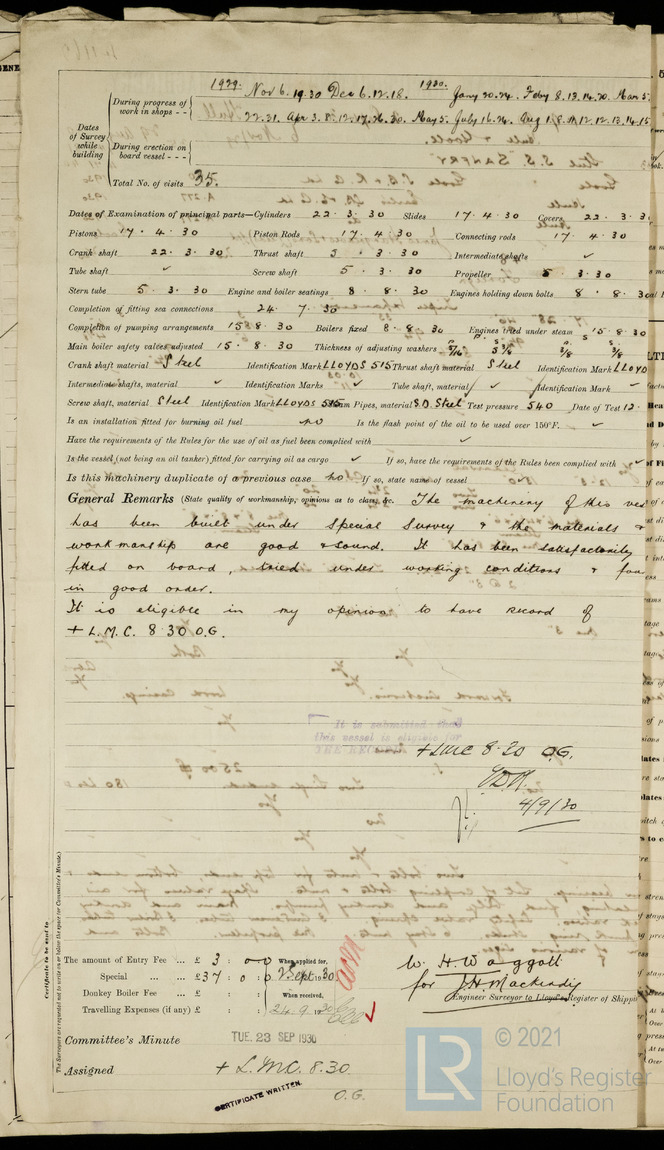 1929. Nov 6. 19. 30 Dec 6. 12. 18. 1930. Jany 20.24. Feby 8. 13. 14. 20. Mar 5.
Dates of Survey while building
During progress of work in shops - -
22. 31. Apr 3. 8. 12. 17. 26. 30. May 5. July 16. 24. Aug 1. 8. 11. 12. 13. 14. 15
During erection on board vessel - - -
Total No. of visits 35.
Dates of Examination of principal parts—Cylinders 22 . 3 . 30 Slides 17 . 4 . 30 Covers 22 . 3 . 3
Pistons 17 . 4 . 30 Piston Rods 17 . 4 . 30 Connecting rods 17 . 4 . 30
Crank shaft 22 . 3 . 30 Thrust shaft 3 . 3 . 30 Intermediate shafts ✓
Tube shaft ✓ Screw shaft 5 . 3 . 30 Propeller 5 . 3 . 30
Stern tube 5 . 3 . 30 Engine and boiler seatings 8 . 8 . 30 Engines holding down bolts 8 . 8 . 30
Completion of fitting sea connections 24 . 7 . 30
Completion of pumping arrangements 15 8 . 30 Boilers fixed 8 . 8 . 30 Engines tried under steam 15 . 8 . 30
Main boiler safety valves adjusted 15 . 8 . 30 Thickness of adjusting washers P 5/16 S 3/8 P 3/8 S 3/8
Crank shaft material Steel Identification Mark LLOYDS 515 Thrust shaft material Steel Identification Mark LLOYD
Intermediate shafts, material ✓ Identification Marks ✓ Tube shaft, material ✓ Identification Mark ✓
Screw shaft, material Steel Identification Mark LLOYDS 515 Steam Pipes, material S.D. Steel Test pressure 540 Date of Test 12 .
Is an installation fitted for burning oil fuel no Is the flash point of the oil to be used over 150°F. ✓
Have the requirements of the Rules for the use of oil as fuel been complied with ✓
Is the vessel (not being an oil tanker) fitted for carrying oil as cargo ✓ If so, have the requirements of the Rules been complied with ✓
Is this machinery duplicate of a previous case no If so, state name of vessel ✓
General Remarks (State quality of workmanship, opinions as to class, &c. The machinery of this ves
has been built under special survey & the materials &
workmanship are good & sound. It has been satisfactorily
fitted on board, tried under working conditions & fou
in good order.
It is eligible in my opinion to have record of
+ L.M.C. 8.30 O.G.
It is submitted that
this vessel is eligible for
THE RECORD
+ LMC 8.30 O.G.
4/9/30
Certificate to be sent to
The Surveyors are requested not to write on or below the space for Committee's Minute.
The amount of Entry Fee ... £ 3 : 0 : 0 When applied for,
Special ... £ 37 : 0 : 0 2 Sept 1930
Donkey Boiler Fee ... £ : : When received,
Travelling Expenses (if any) £ : : 24.9.1930
W. H. Waggott
for J.H. Mackendig
Engineer Surveyor to Lloyd's Register of Shippin
Committee's Minute TUE. 23 SEP 1930
Assigned + L.M.C. 8.30.
O.G.
CERTIFICATE WRITTEN.
LR
© 2021
Lloyd's Register
Foundation